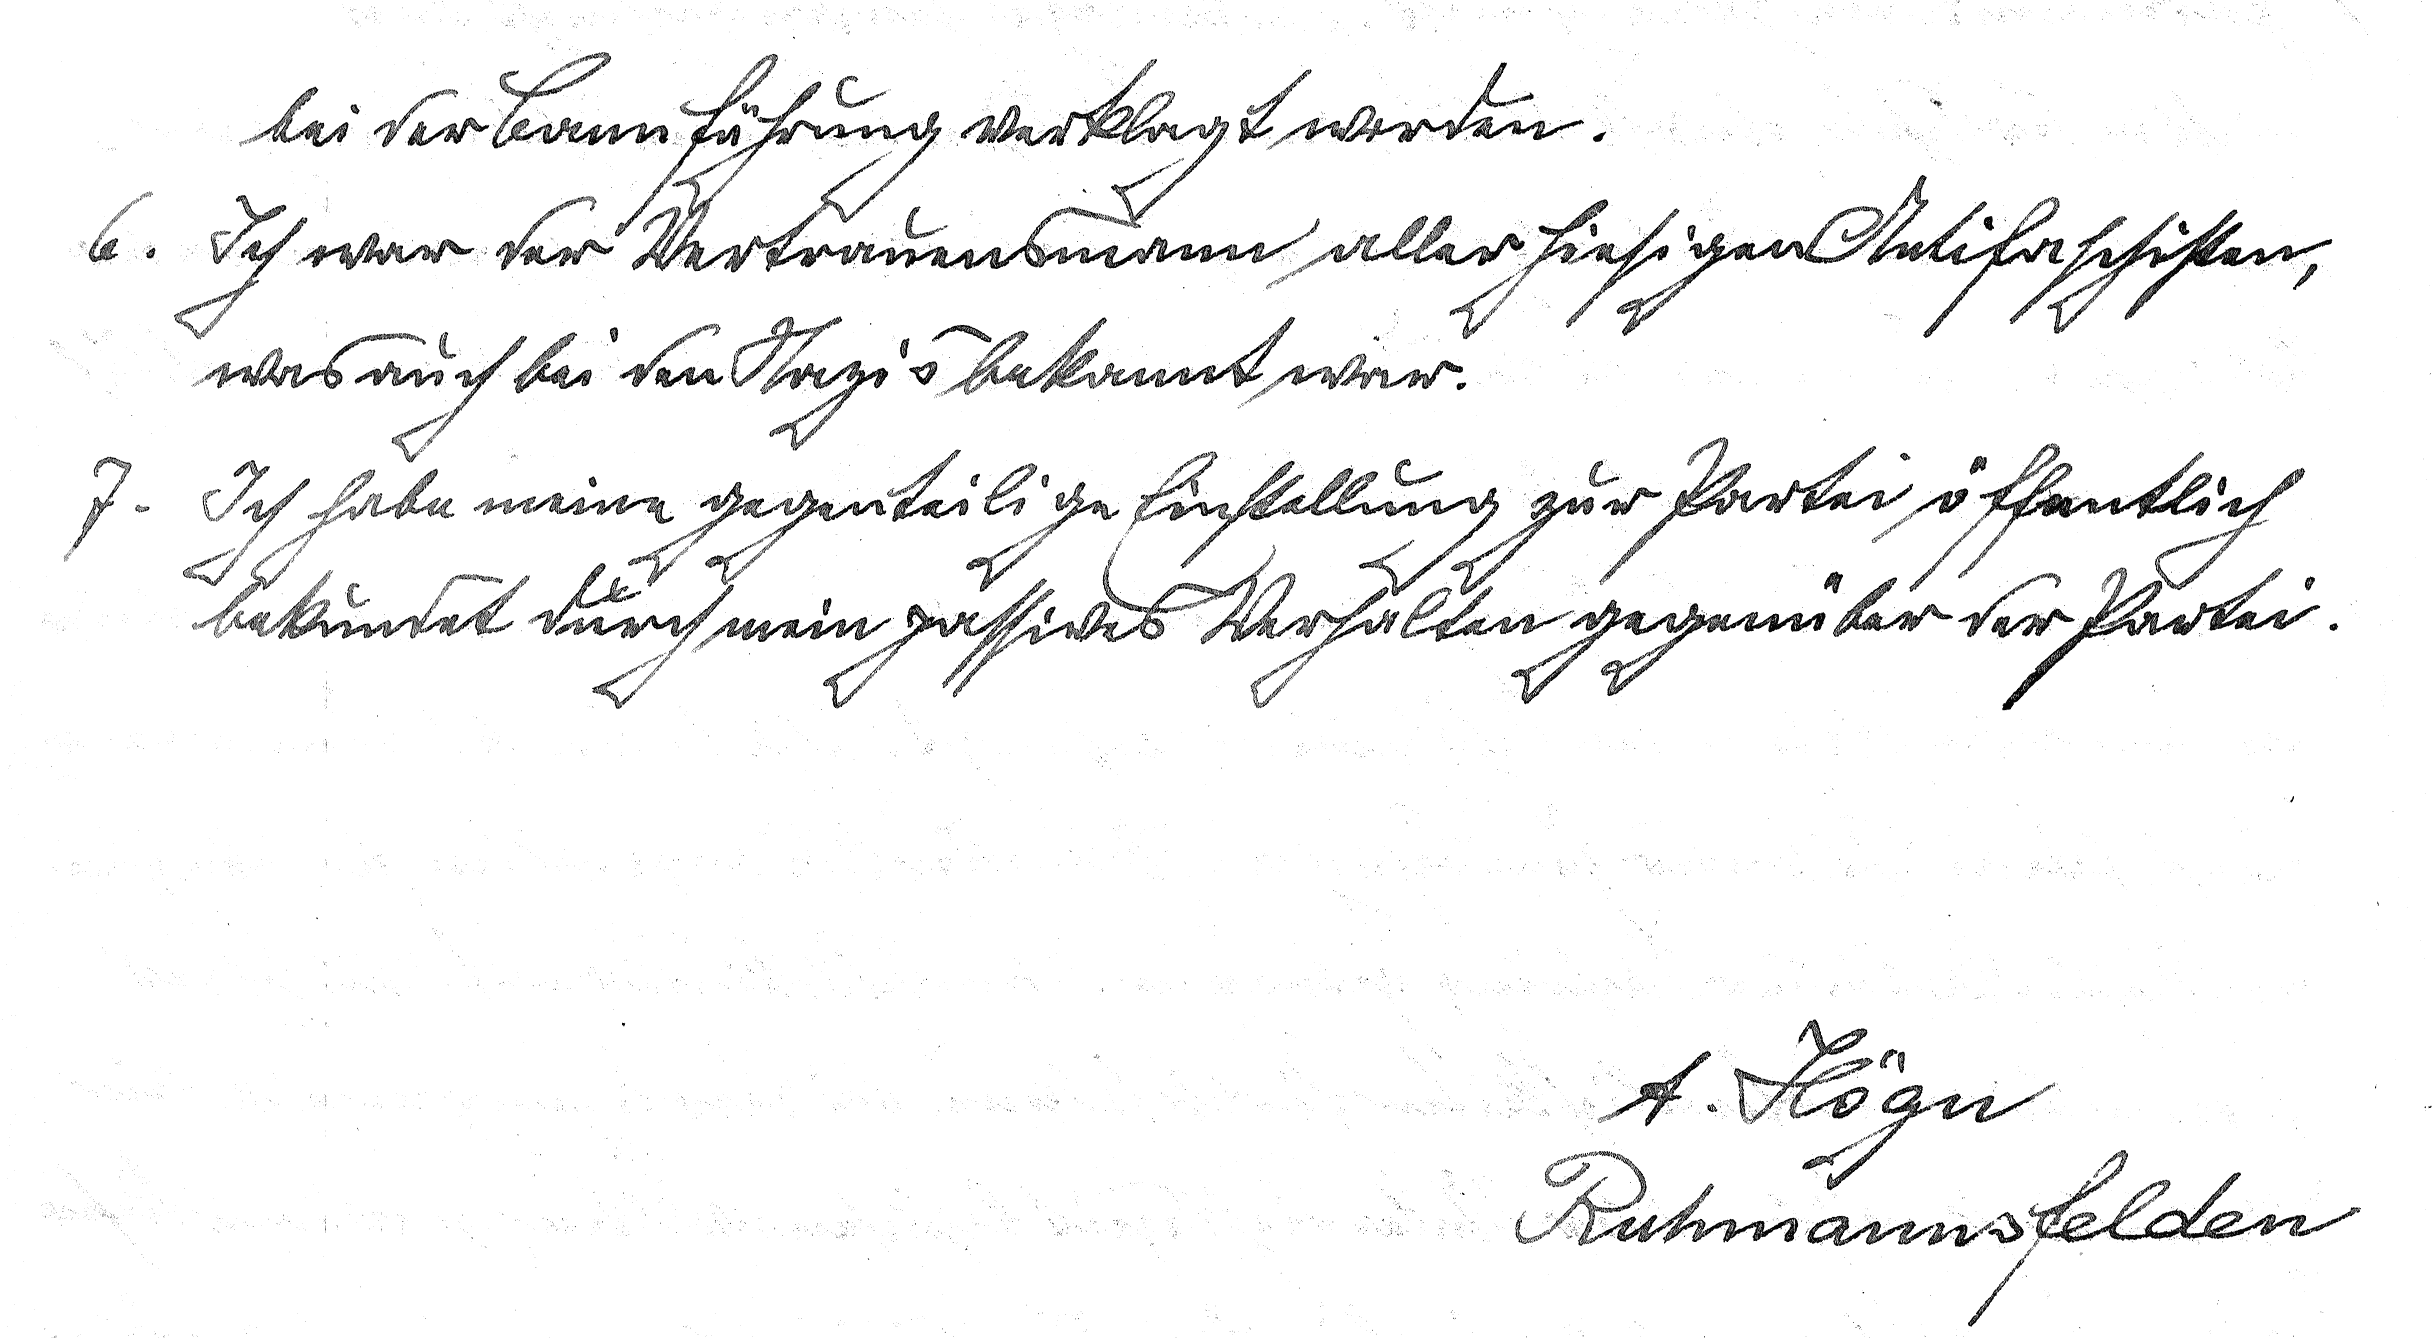 bei der Bannführung verklagt worden.
6. Ich war der Vertrauensmann aller hiesigen Antifaschisten,
was auch bei den Nazis bekannt war.
7. Ich habe meine gegenteilige Einstellung zur Partei öffentlich
bekundet durch mein passives Verhalten gegenüber der Partei.
A. Högn
Ruhmannsfelden